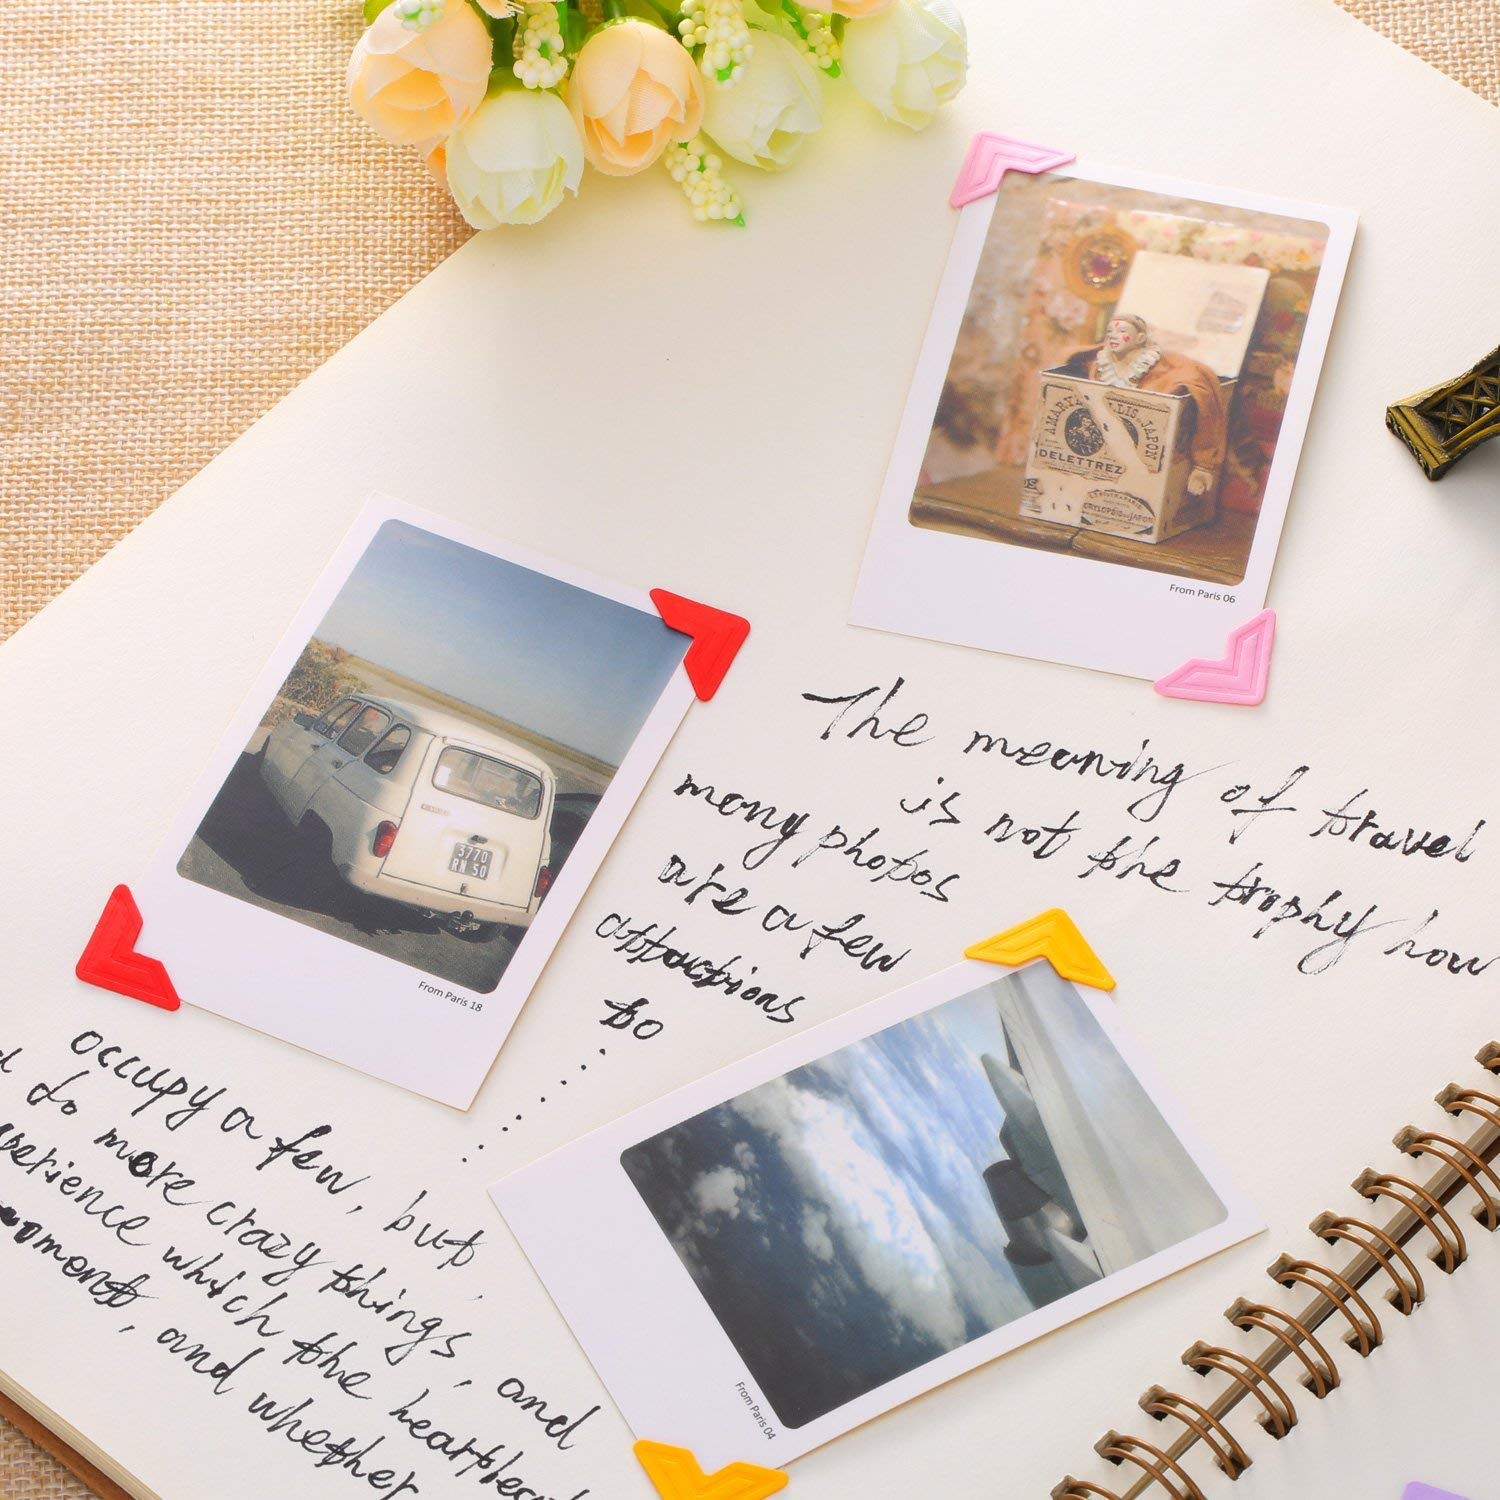 AMARYLLIS DU JAPON
DELETTREZ
From Paris 06
3770
RN 50
From Paris 18
The meaning of travel
is not the trophy how
many photos
are a few
attactions
to
.......
occupy a few, but
do more crazy things, and
which the
and whether
From Paris 04